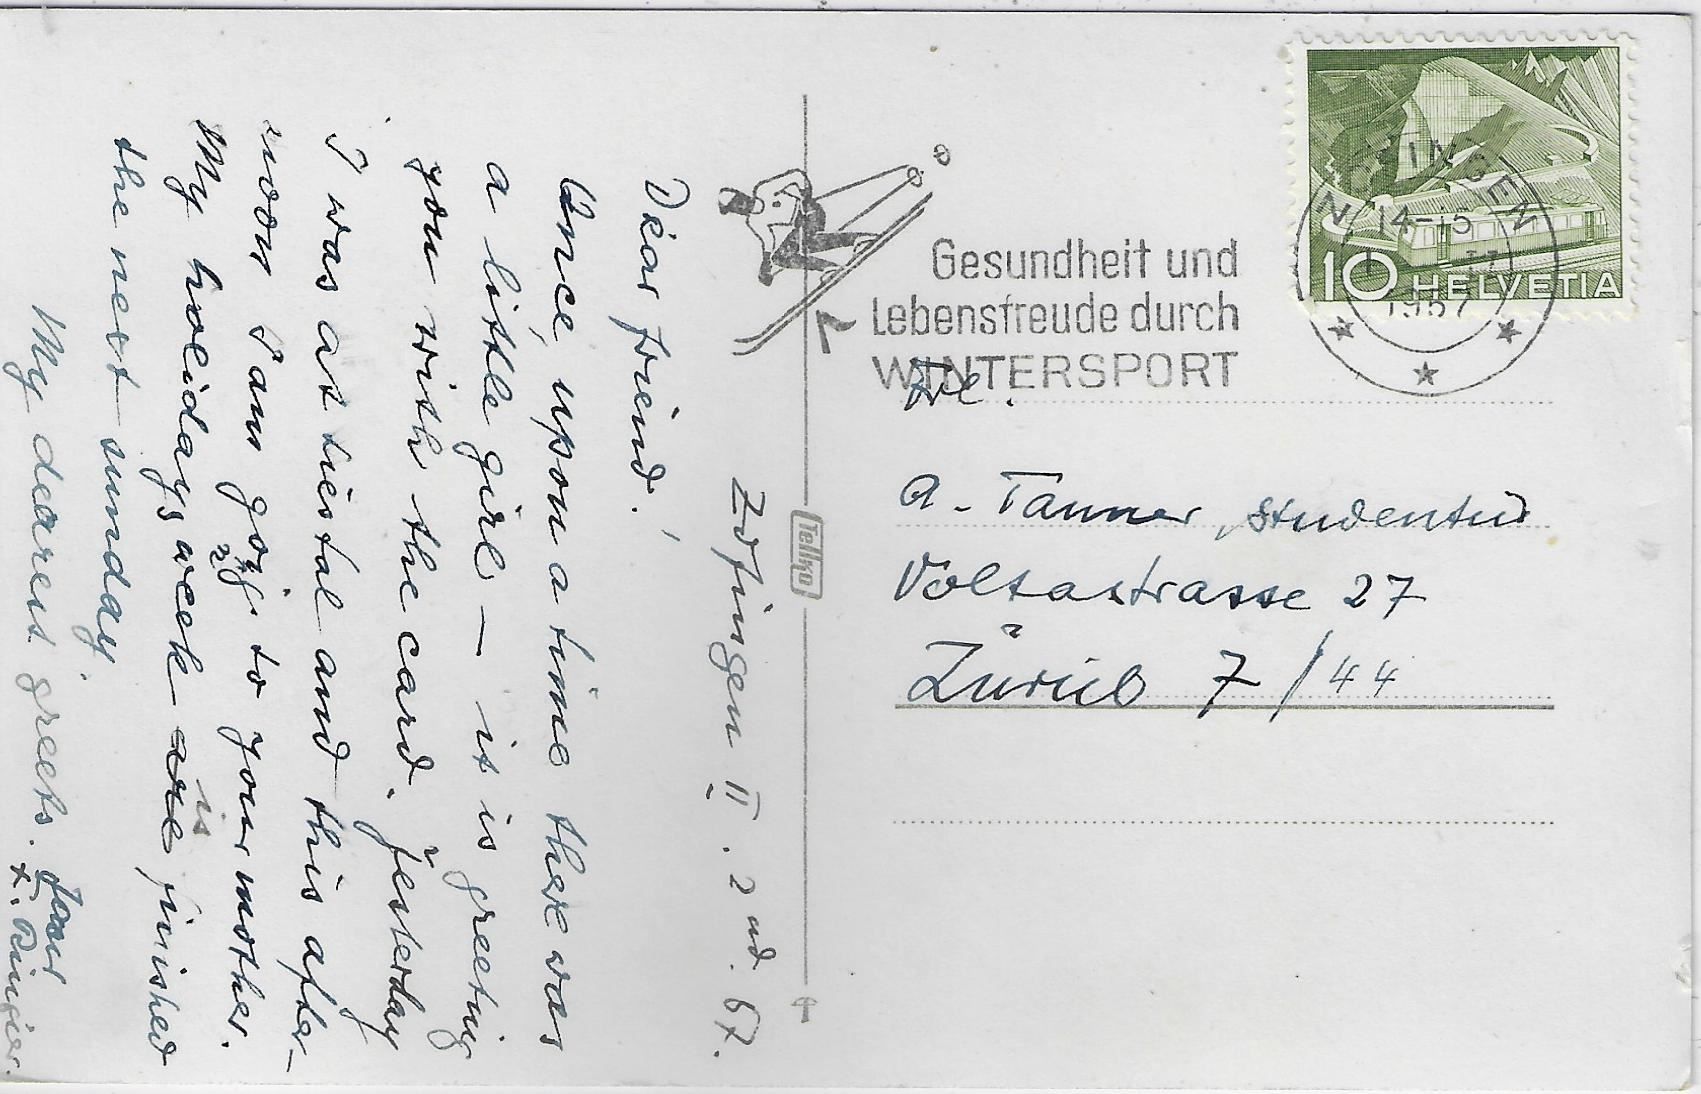 Zofingen II. 2nd. 57.
Dear friend!
Once upon a time there was
a little girl – it is greeting
you with the card. Jesterday
I was at Liestal and this after-
noon I am going to your mother.
My holidays week are is finished
the next sunday.
My dearest greets. Your
Ringier.
Tellko
Gesundheit und
Lebensfreude durch
WINTERSPORT
14-15
1957
10 HELVETIA
Frl.
A. Tanner, studentin
Voltastrasse 27
Zürich 7/44